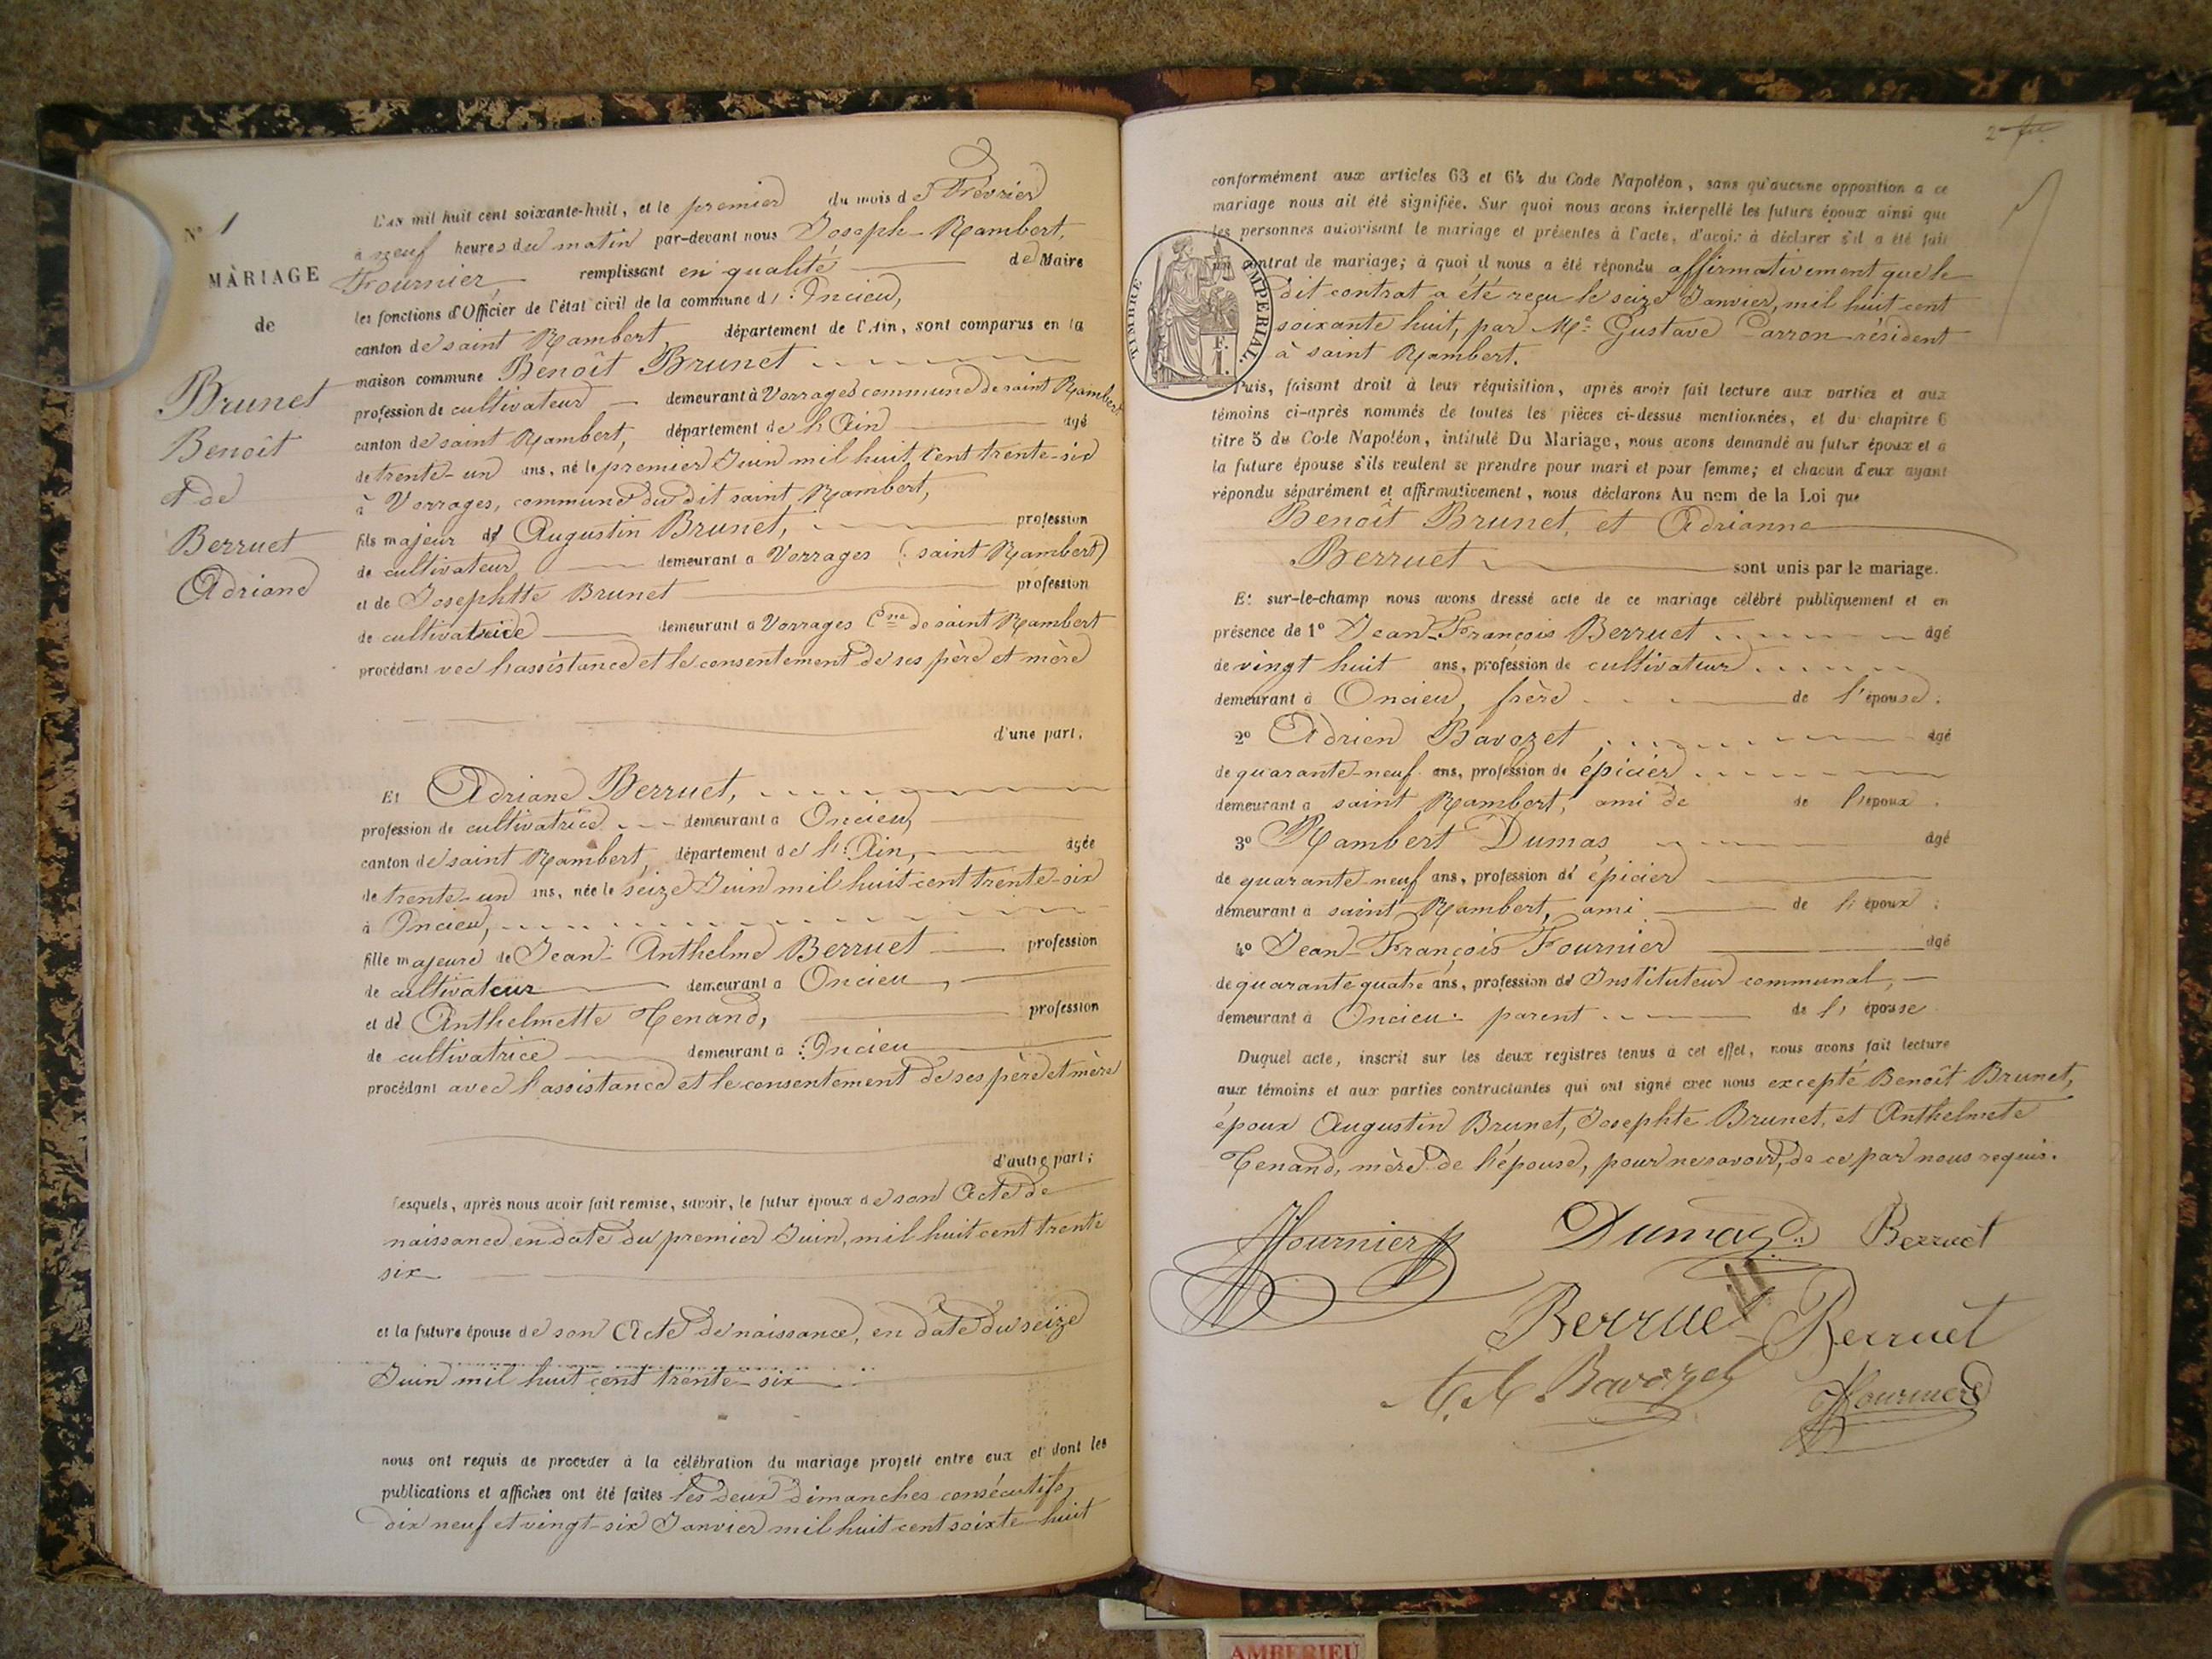 N° 1
MARIAGE
de
Brunet
Benoît
et de
Berruet
Adriane
L'an mil huit cent soixante-huit, et le premier du mois de Février
à neuf heures du matin par-devant nous Joseph-Rambert,
Fournier, remplissant en qualité de Maire
les fonctions d'Officier de l'état civil de la commune d'Oncieu,
canton de saint Rambert département de l'Ain, sont comparus en la
maison commune Benoît Brunet
profession de cultivateur demeurant à Vorrages commune de saint Rambert
canton de saint Rambert, département de l'Ain âgé
de trente-un ans, né le premier Juin mil huit cent trente-six
à Vorrages, commune du dit saint Rambert,
fils majeur de Augustin Brunet, profession
de cultivateur demeurant a Vorrages (saint Rambert)
et de Josephtte Brunet profession
de cultivatrice demeurant a Vorrages Cne de saint Rambert
procédant vec l'assistance et le consentement de ses père et mère
d'une part.
Et Adriane Berruet,
profession de cultivatrice demeurant a Oncieu,
canton de saint Rambert, département de l'Ain, âgée
de trente-un ans, née le seize Juin mil huit cent trente-six
à Oncieu,
fille majeure de Jean-Anthelme Berruet profession
de cultivateur demeurant a Oncieu,
et de Anthelmette Tenand, profession
de cultivatrice demeurant à Oncieu
procédant avec l'assistance et le consentement de ses père et mère
d'autre part;
Lesquels, après nous avoir fait remise, savoir, le futur époux de son Acte de
naissance en date du premier Juin, mil huit cent trente
six
et la future épouse de son Acte de naissance, en date du seize
Juin mil huit cent trente-six
nous ont requis de procéder à la célébration du mariage projeté entre eux et dont les
publications et affiches ont été faites les deux dimanches consécutifs,
dix neuf et vingt-six Janvier mil huit cent soixte-huit
2
conformément aux articles 63 et 64 du Code Napoléon, sans qu'aucune opposition a ce
mariage nous ait été signifiée. Sur quoi nous avons interpellé les futurs époux ainsi que
les personnes autorisant le mariage et présentes à l'acte, d'avoir à déclarer s'il a été fait
un contrat de mariage; à quoi il nous a été répondu affirmativement que le
dit contrat a été reçu le seize Janvier, mil huit cent
soixante huit, par Me Gustave Parron résident
à saint Rambert.
TIMBRE IMPERIAL.
F.
1.
Puis, faisant droit à leur réquisition, après avoir fait lecture aux parties et aux
témoins ci-après nommés de toutes les pièces ci-dessus mentionnées, et du chapitre 6
titre 5 du Code Napoléon, intitulé Du Mariage, nous avons demandé au futur époux et a
la future épouse s'ils veulent se prendre pour mari et pour femme; et chacun d'eux ayant
répondu séparément et affirmativement, nous déclarons Au nom de la Loi que
Benoît Brunet, et Adrianne
Berruet sont unis par le mariage.
Et sur-le-champ nous avons dressé acte de ce mariage célébré publiquement et en
présence de 1° Jean-François Berruet âgé
de vingt huit ans, profession de cultivateur
demeurant à Oncieu, frère de l'épouse.
2° Adrien Bavozet âgé
de quarante-neuf ans, profession de épicier
demeurant a saint Rambert, ami de de l'époux.
3° Rambert Dumas âgé
de quarante-neuf ans, profession de épicier
demeurant à saint Rambert, ami de l'époux;
4° Jean-François Fournier âgé
de quarante quatre ans, profession de Instituteur communal,
demeurant à Oncieu. parent de l'épouse
Duquel acte, inscrit sur les deux registres tenus à cet effet, nous avons fait lecture
aux témoins et aux parties contractantes qui ont signé avec nous excepté Benoît Brunet,
époux Augustin Brunet, Josephte Brunet, et Anthelmete
Tenand, mère de l'épouse, pour ne savoir, de ce par nous requis.
Fournier Dumas Berruet
Berruet Berruet
Bavozet Fournier
AMBERIEU